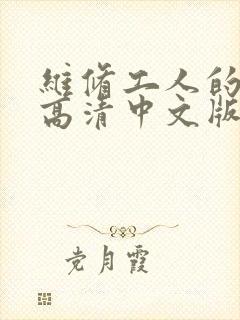 維脩工人的
高清中文版
党月霞